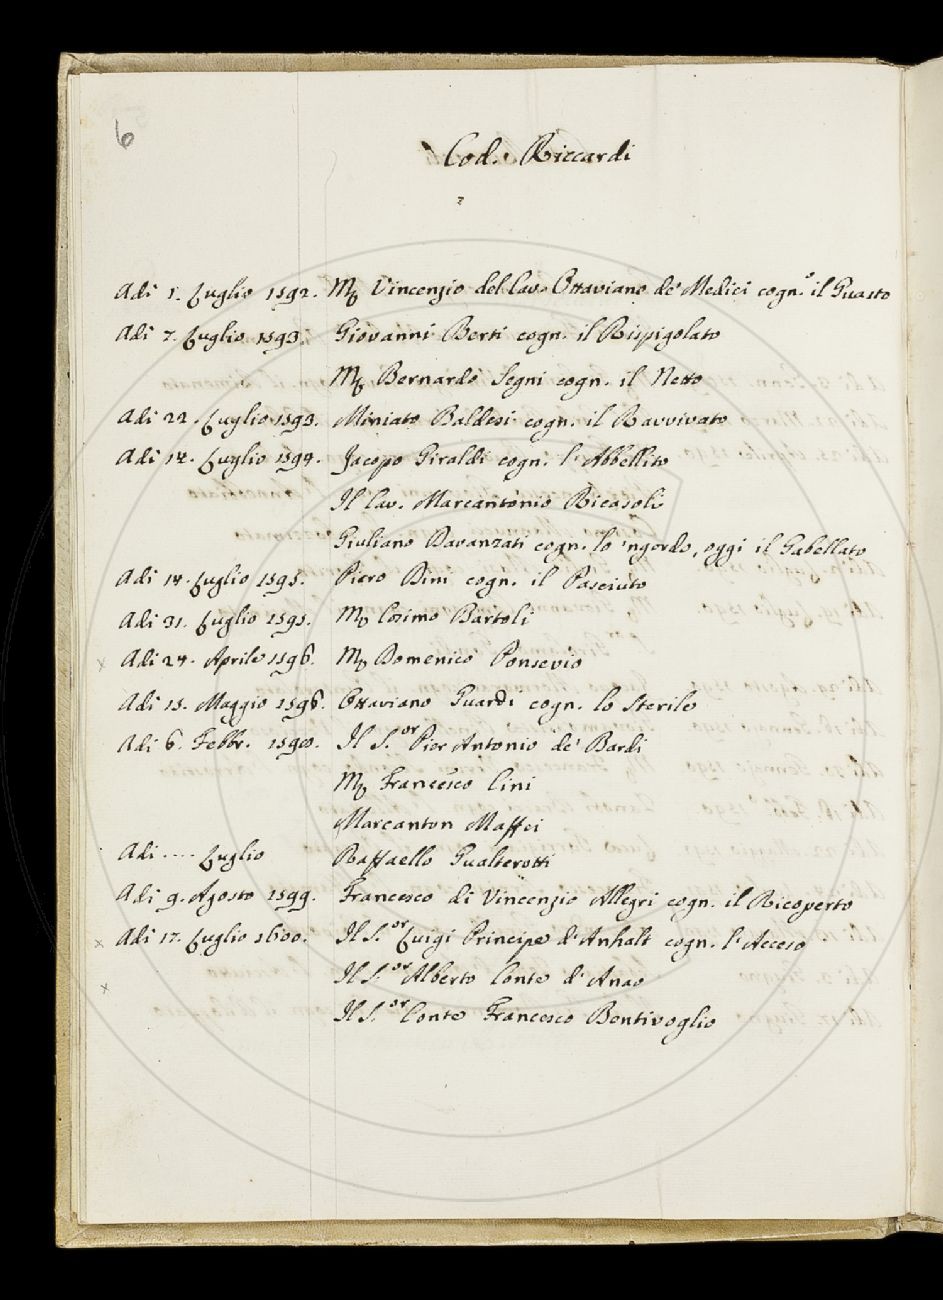 6
Cod. Riccardi
Adi 1. Luglio 1592. M. Vincenzio del Cav. Ottaviano de' Medici cogn.o il Guasto
Adi 7. Luglio 1593. Giovanni Berti cogn. il Rispigolato
M. Bernardo Segni cogn. il Netto
Adi 22. Luglio 1593. Miniato Baldesi cogn. il Ravvivato
Adi 14. Luglio 1594. Jacopo Giraldi cogn. l'Abbellito
Il Cav. Marcantonio Ricasoli
Giuliano Davanzati cogn. lo 'ngordo, oggi il Gabellato
Adi 14. Luglio 1595. Piero Dini cogn. il Pasciuto
Adi 31. Luglio 1595. M. Cosimo Bartoli
x Adi 24. Aprile 1596. M. Domenico Ponsevio
Adi 15. Maggio 1596. Ottaviano Guardi cogn. lo Sterile
Adi 6. Febbr. Il S.or Pier Antonio de' Bardi
M. Francesco Cini
Marcanton Maffei
Adi .... Luglio Raffaello Gualterotti
Adi 9. Agosto 1599. Francesco di Vincenzio Allegri cogn. il Ricoperto
x Adi 17. Luglio 1600. Il S.or Luigi Principe d'Anhalt cogn. l'Acceso
x Il S.or Alberto Conte d'Anao
Il S.or Conte Francesco Bentivoglio